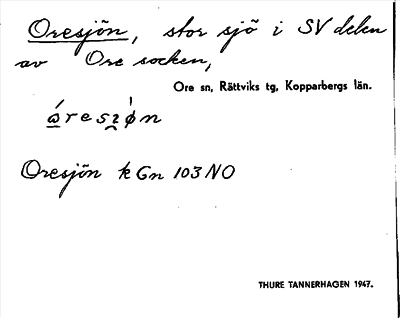 Oresjön, stor sjö i SV delen
av Ore socken,
Ore sn, Rättviks tg, Kopparbergs län.
Oresjön k Gn 103 NO
THURE TANNERHAGEN 1947.